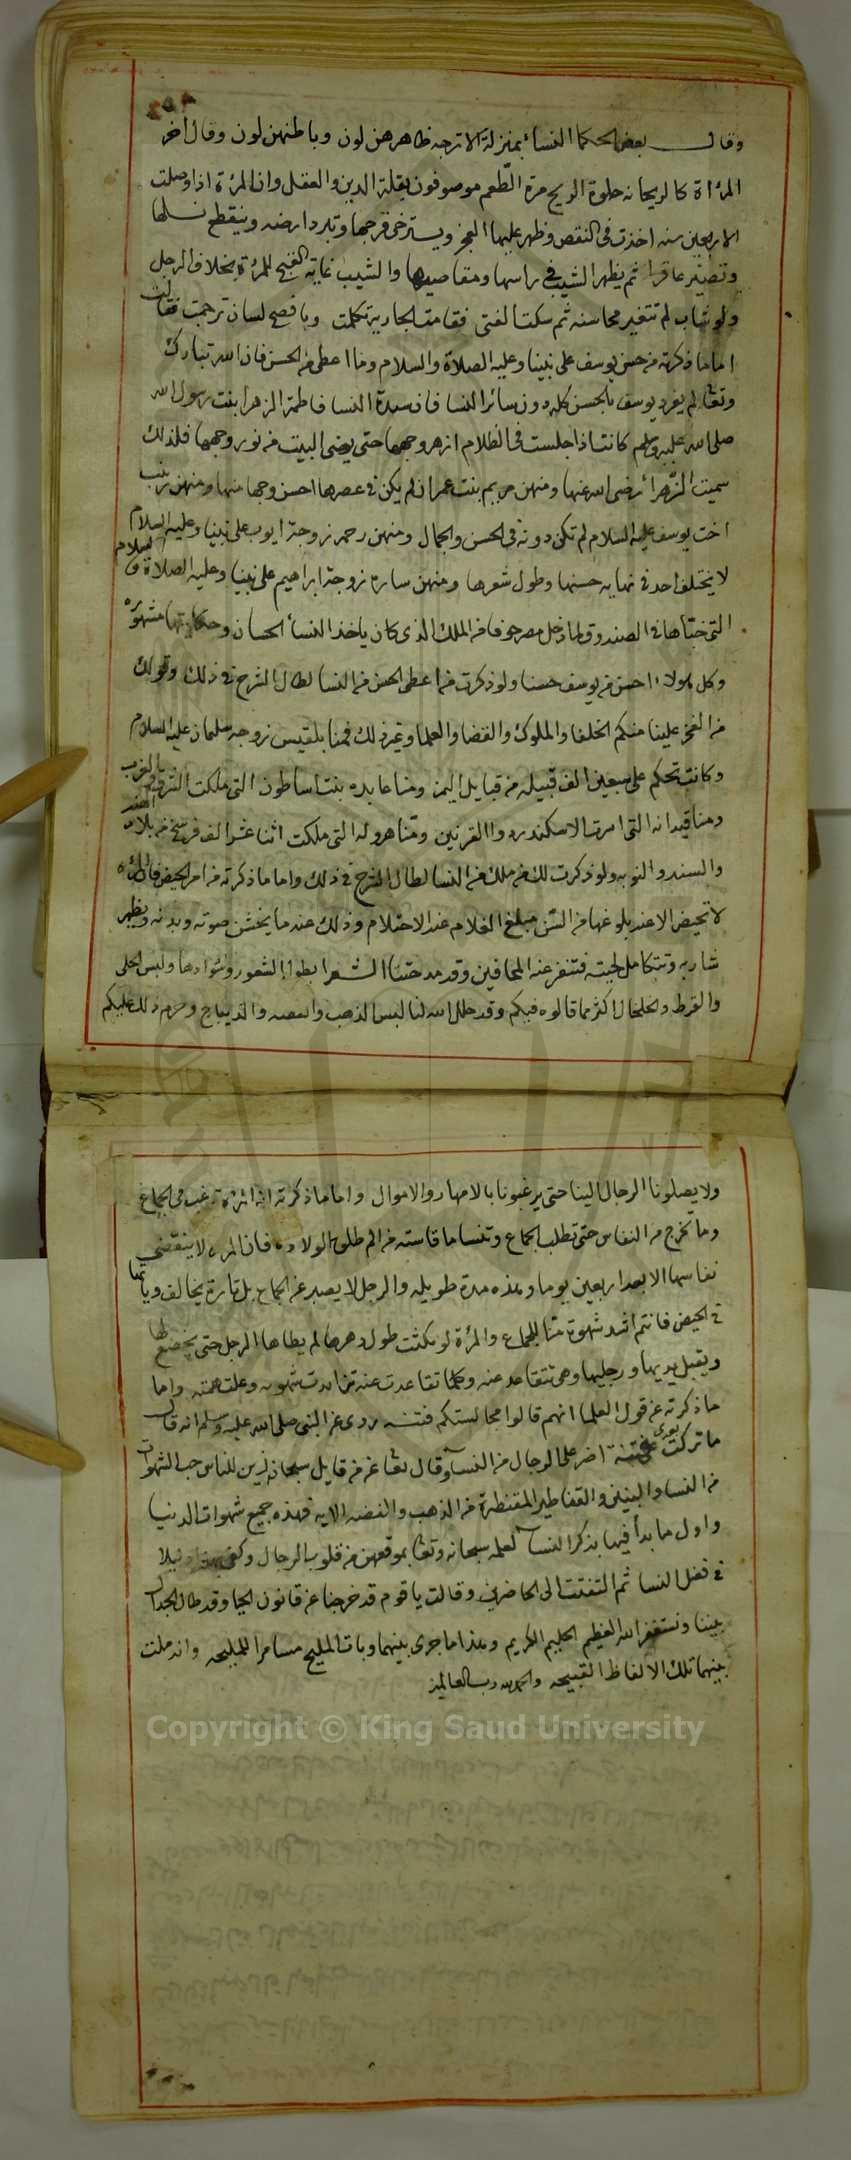 وقال بعض الحكما النسأ بمنزلة الاترجه ظاهرهن لون وباطنهن لون وقال اخر
المرأة كالريحانه حلوة الريح مرة الطعم موصوفون بقلة الدين والعقل وان المرئة اذا وصلت
الاربعين سنه اخذت فى النقص وظهر عليها العجز ويسترخى فرجها وتبرد ارضه وينقطع نسلها
وتصير عاقرا ثم يظهر الشيب فى راسها ومقاصيصها والشيب غاية القبح للمرئة بخلاف الرجل
ولو شاب لم تتغير محاسنه ثم سكت الفتى فقامت الجارية تكلمت وبافصح لسان ترجمت فقالت
اما ما ذكرته من حسن يوسف على نبينا وعليه الصلاة والسلام وما اعطى من الحسن فان الله تبارك
وتعا لم يفرد يوسف بالحسن كله دون سائر النسا فان سيدة النسا فاطمة الزهرا بنت رسول الله
صلى الله عليه وسلم كانت اذا جلست فى الظلام ازهر وجهها حتى يضى البيت من نور وجهها فلذلك
سميت الزهرا رضى الله عنها ومنهن مريم بنت عمران لم يكن فى عصرها احسن وجها منها ومنهن زينب
اخت يوسف عليه السلام لم تكن دونه فى الحسن والجمال ومنهن رحمه زوجة ايوب على نبينا وعليه السلام
لا يختلف احد فى نهاية حسنها وطول شعرها ومنهن ساره زوجة ابراهيم على نبينا وعليه الصلاة والسلام
التى خبأها فى الصندوق لما دخل مصر خوفا من الملك الذى كان ياخذ النسأ الحسان وحكايتها مشهورة
وكل هولاء احسن من يوسف حسنا ولو ذكرت من اعطى الحسن من النسا لطال الشرح فى ذلك وقولك
من الفخر علينا منكم الخلفا والملوك والقضا والعلما وغير ذلك فمنا بلقيس زوجه سليمان عليه السلام
وكانت تحكم على سبعين الف قبيله من قبايل اليمن ومنا عابده بنت ساطون التى ملكت الشرق والغرب
ومنا قيدانه التى اسرت الاسكندر ذا القرنين ومنا هروله التى ملكت اثنا عشر الف فرسخ من بلاد الهند
والسند والنوبه ولو ذكرت لك من ملك من النسا لطال الشرح فى ذلك واما ما ذكرته من امر الحيض فان المرئة
لا تحيض الا عند بلوغها من السن مبلغ الغلام عند الاحتلام وذلك عند ما يخشن صوته وبدنه ويظهر
شاربه وتتكامل لحيته فتنفر عنه المحافين وقد مدحتنا الشعرا بطول الشعور وسوادها ولبس الحلى
والقرط والخلخال اكثر مما قالوه فيكم وقد حلل الله لنا لبس الذهب والفضه والديباج وحرم ذلك عليكم
ولا يصلونا الرجال الينا حتى يرغبونا بالامهار والاموال واما ما ذكرته ان المرئة ترغب فى الجماع
وما تخرج من النفاس حتى تطلب الجماع وتنسا ما قاسته من الم طلق الولاده فان المرءه لا ينقضى
نفاسها الا بعد اربعين يوما وهذه مدة طويله والرجل لا يصبر عن الجماع بل تارة يخالف وياتيها
فى الحيض فانتم اشد شهوة منا للجماع والمرأة لو مكثت طول دهرها لم يطاها الرجل حتى يخضع لها
ويقبل يديها ورجليها وهى تتقاعد عنه وكلما تقاعدت عنه تزايدت شهوته وعلت همته واما
ما ذكرته عن قول العلما انهم قالوا مجالستكم فتنه روى عن النبى صلى الله عليه وسلم انه قال
ما تركت بعدى فتنة اضر على الرجال من النسأ وقال تعا عز من قايل سبحانه زين للناس حب الشهوات
من النسا والبنين والقناطير المقنطرة من الذهب والفضه الايه فهذه جميع شهوات الدنيا
واول ما بدأ فيها بذكر النسا لعلمه سبحانه وتعا بموقعهن من قلوب الرجال وكفى بهذا دليلا
فى فضل النسا ثم التفتت الى الحاضرين وقالت يا قوم قد خرجنا عن قانون الحيا وقد طال الجدال
بيننا ونستغفر الله العظيم الحليم الكريم وهذا ما جرى بينهما وبات المليح مسامرا للمليحه واندملت
بينهما تلك الالفاظ القبيحه والحمد لله رب العالمين
Copyright © King Saud University